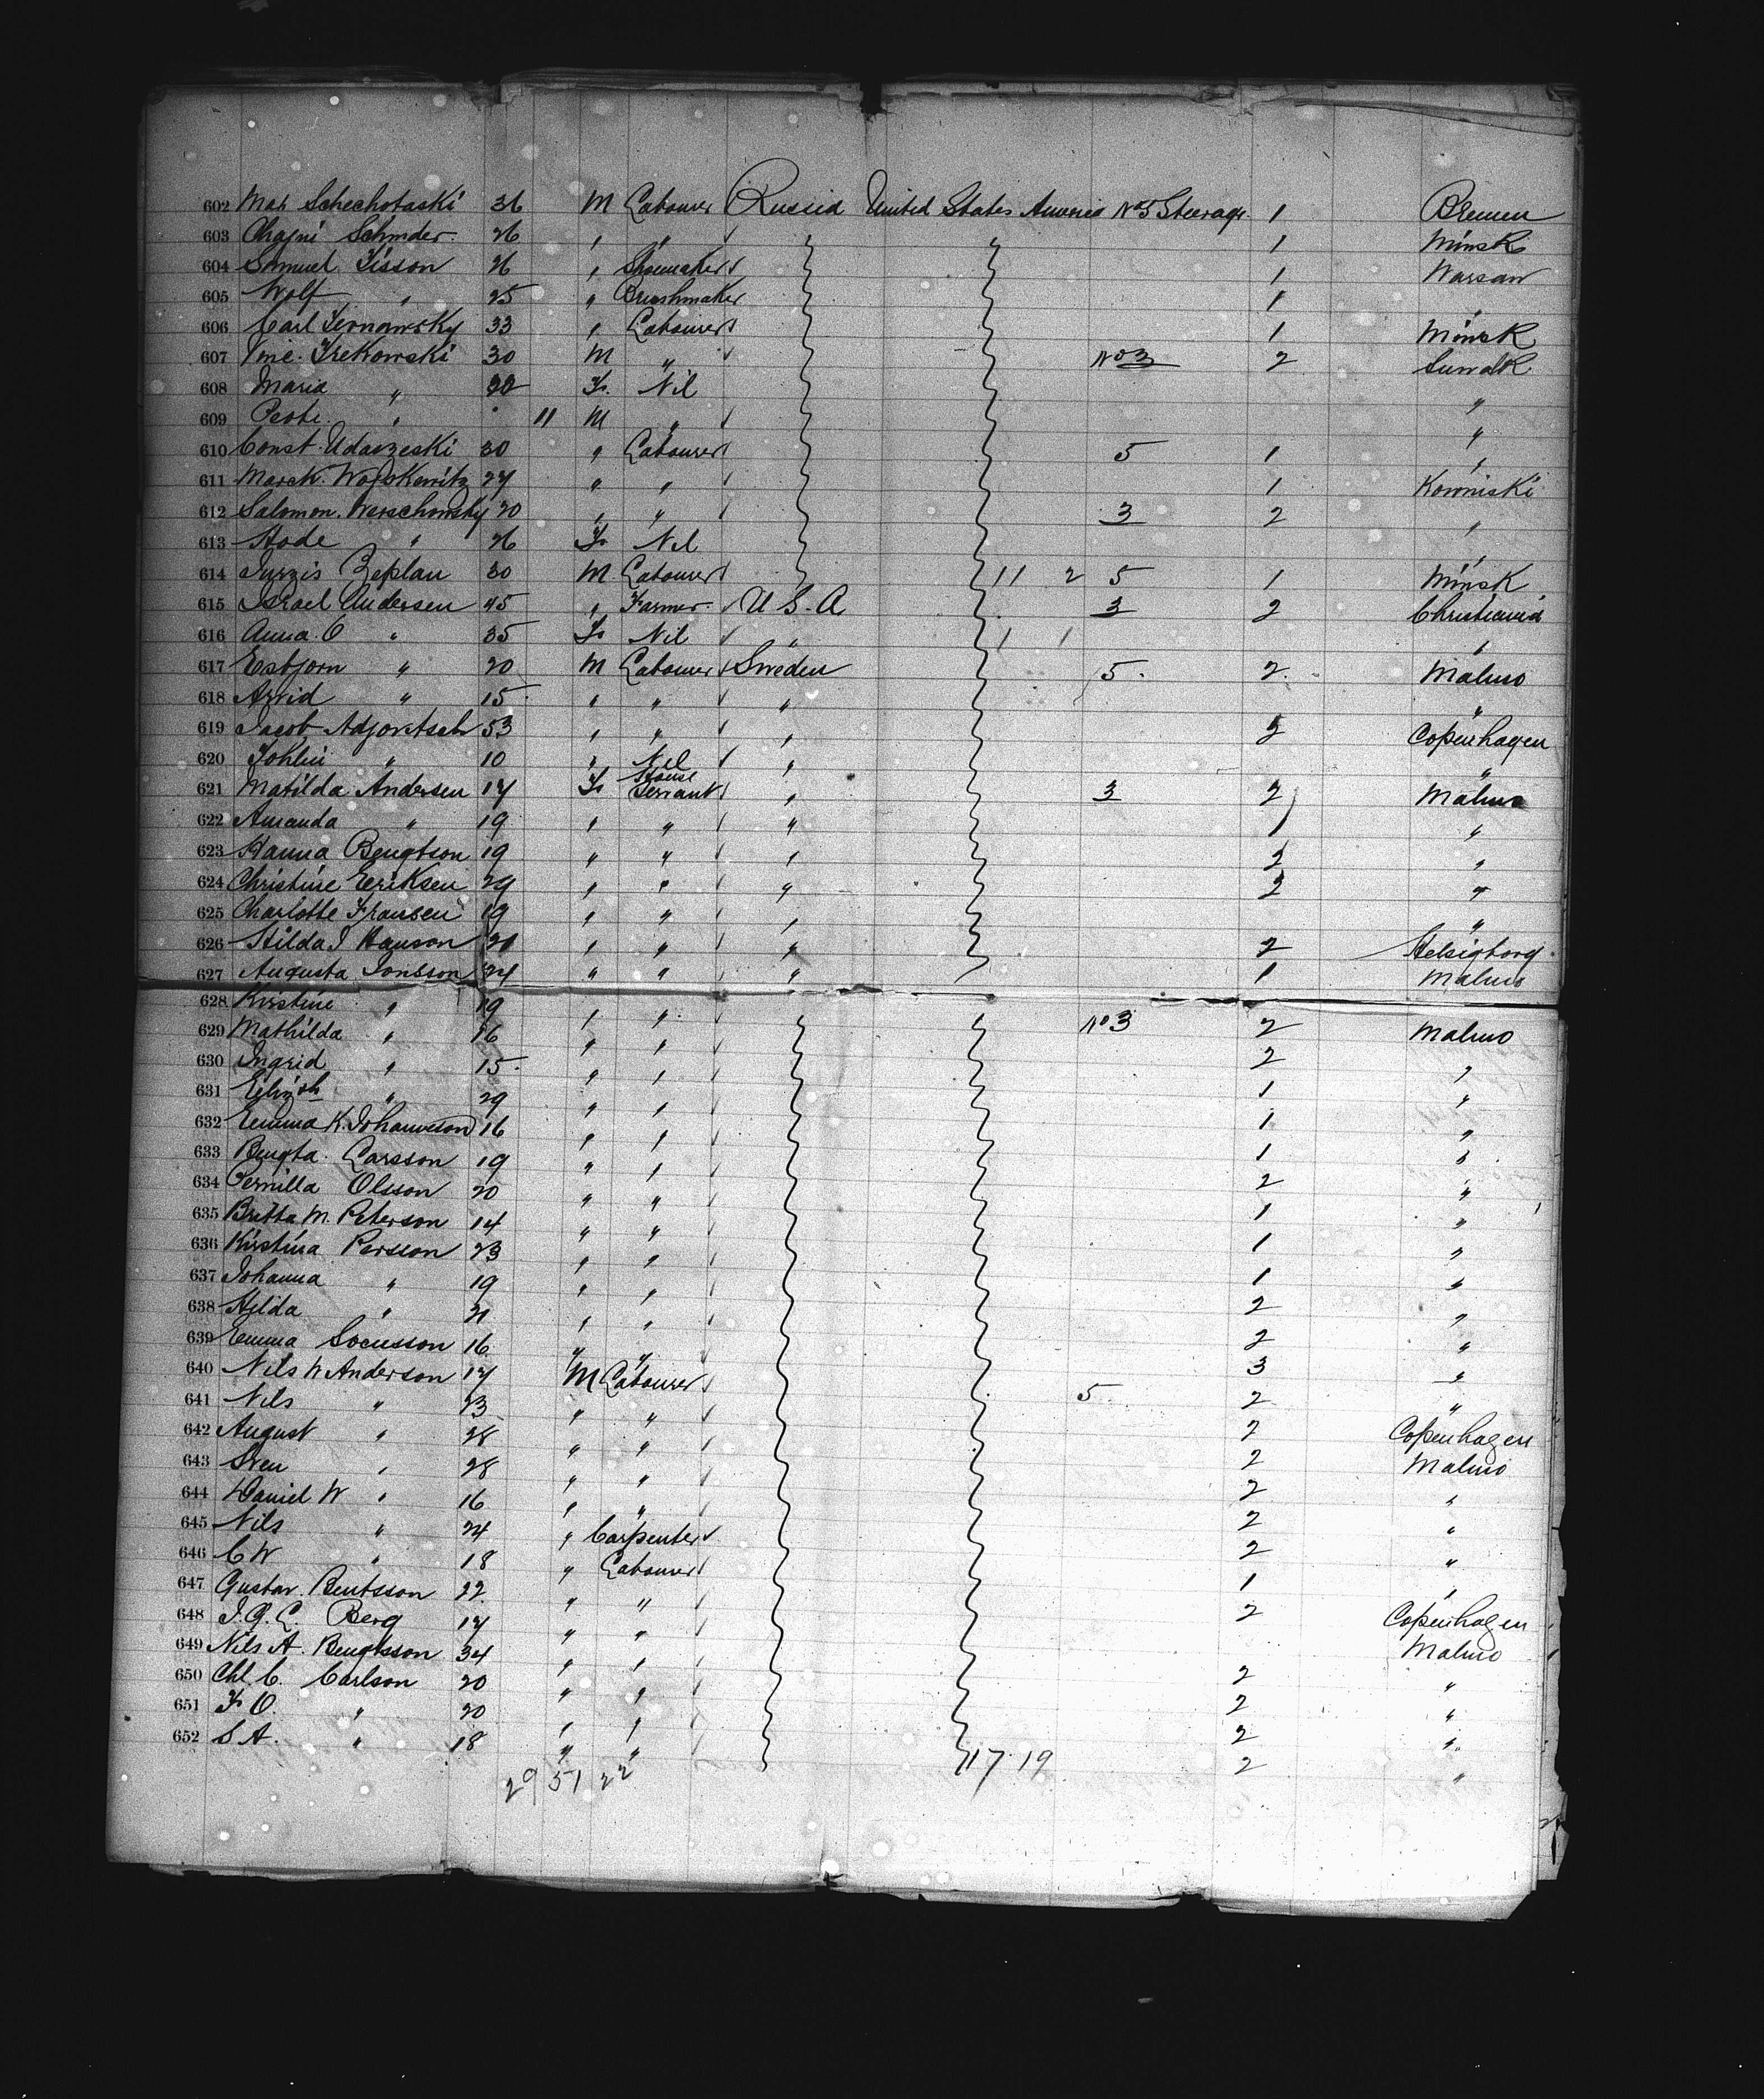 602 Max Schechotaski 36 M Labourer Russia United States America No 5 Steerage 1 Bremen
603 Chajni Schnider 26 " " 1 Minsk
604 Samuel Tisson 26 " Shoemaker 1 Warsaw
605 Wolf " 25 " Brushmaker 1 "
606 Carl 33 " Labourer 1 Minsk
607 Vinc. 30 M " No 3 2 Suwalk
608 Maria " F. Nil "
609 " 11 M " "
610 Const. Udaszeski 30 " Labourer 5 1 "
611 Marck. 27 " " 1 Kowniski
612 Salomon. Werschowsky 20 " " 3 2 "
613 " 26 F. Nil "
614 Zeplan 30 M. Labourer 11 2 5 1 Minsk
615 Israel Andersen 45 " Farmer U. S. A 3 2 Christiania
616 Anna. O " 35 F. Nil " 1 1 "
617 Esbjorn " 20 M Labourer Sweden 5. 2. Malmo
618 Arvid " 15 " " " "
619 Jacob 53 " " " 2 Copenhagen
620 " 10 " Nil " "
621 Matilda Andersen 17 F. House Servant " 3 2 Malmo
622 Amanda " 19 " " " 1 "
623 Hanna Bengtson 19 " " " 2 "
624 Christine Eeriksen 29 " " " 2 "
625 Charlotte Fransen 19 " " " "
626 Hilda J Hanson 21 " " " 2 Helsigborg
627 Augusta Jonsson 24 " " " 1 Malmo
628 Kirstine " 19 " "
629 Mathilda " 16 " " No 3 2 Malmo
630 Ingrid " 15 " " 2 "
631 " 29 " " 1 "
632 Emma K. Johanneson 16 " " 1 "
633 Bengta. Larsson 19 " " 1 "
634 Pernilla Olsson 20 " " 2 "
635 Britta M. Peterson 14 " " 1 "
636 Kirstina Persson 23 " " 1 "
637 Johanna " 19 " " 1 "
638 Hilda " 21 " " 2 "
639 Emma 16 " " 2 "
640 Nils W Anderson 17 M Labourer 3 "
641 Nils " 23 " " 5 2 "
642 August " 28 " " 2 Copenhagen
643 Sven " 28 " " 2 Malmo
644 Daniel W " 16 " " 2 "
645 Nils " 24 " Carpenter 2 "
646 C W " 18 " Labourer 2 "
647 Gustav. Bentsson 22 " " 1 "
648 Berg 17 " " 2 Copenhagen
649 Nils A. Bengtsson 34 " " Malmo
650 Chl. C. Carlson 20 " " 2 "
651 F. O. " 20 " " 2 "
652 S A. " 18 " " 2 "
29 51 22 17. 19 2 "